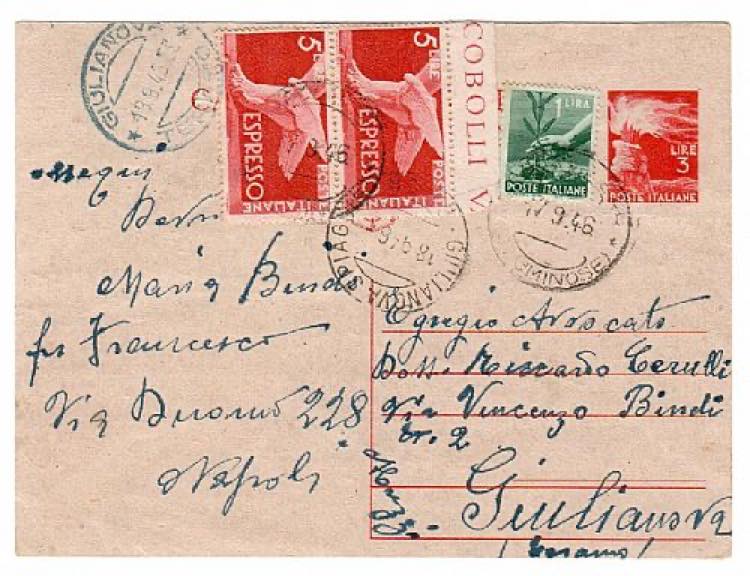 GIULIANOVA
18.9.46
5 LIRE
ESPRESSO
POSTE
ITALIANE
5 LIRE
ESPRESSO
POSTE
ITALIANE
COBOLLI V
1 LIRA
POSTE ITALIANE
LIRE
3
POSTE ITALIANE
9.46
17.9.46
GIULIANOVA SPIAGGIA
18.9.46
Maria Bindi
fu Francesco
Via Duomo 228
Napoli
Egregio Avvocato
Dott. Riccardo Cerulli
Via Vincenzo Bindi
nr. 2
Giulianova
(Teramo)